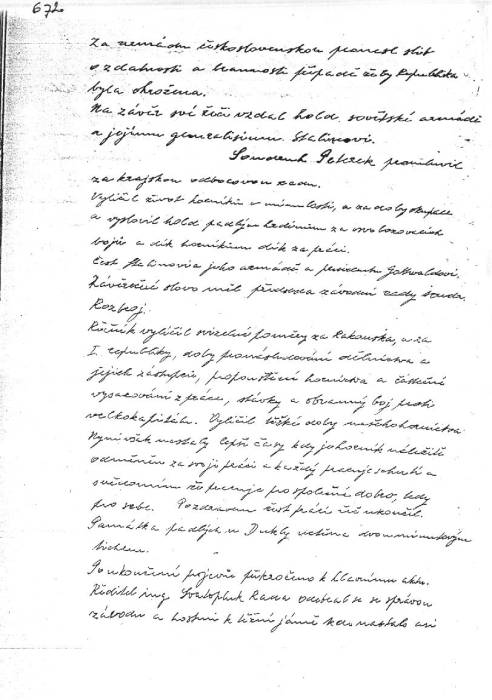 672
Za armádu československou pronesl slib
o zdatnosti a brannosti případě že by Republika
byla ohrožena.
Na závěr své řeči vzdal hold sovětské armádě
a jejímu generalisimu Stalinovi.
Soudruh promluvil
za krajskou odborovou radu.
Vylíčil život horníků v minulosti, a za doby okupace
a vyslovil hold padlým hrdinům za osvobozovacích
bojů a dík horníkům dík za práci.
Čest Stalinovi a jeho armádě a presidentu Gottwaldovi.
Závěrečné slovo měl předseda závodní rady soudr.
Rozbroj.
Řečník vylíčil svízelné poměry za Rakouska, a za
I. republiky, doby pronásledování dělnictva a
jejich zástupců, propouštění hornictva a částečné
vysazování z práce, stávky a obranný boj proti
velkokapitálu. Vylíčil těžké doby našeho hornictva
Nyní však nastaly lepší časy kdy je horník náležitě
odměněn za svoji práci a každý pracuje s chutí a
svědomím že pracuje pro společné dobro, tedy
pro sebe. Pozdravem čest práci řeč ukončil.
Památka padlých u Dukly uctěna dvouminutovým
tichem.
Po ukončení projevů přikročeno k hlavnímu aktu.
Ředitel ing. Svatopluk Rada odebral se se správou
závodu a hostmi k těžní jámě kde nastalo asi